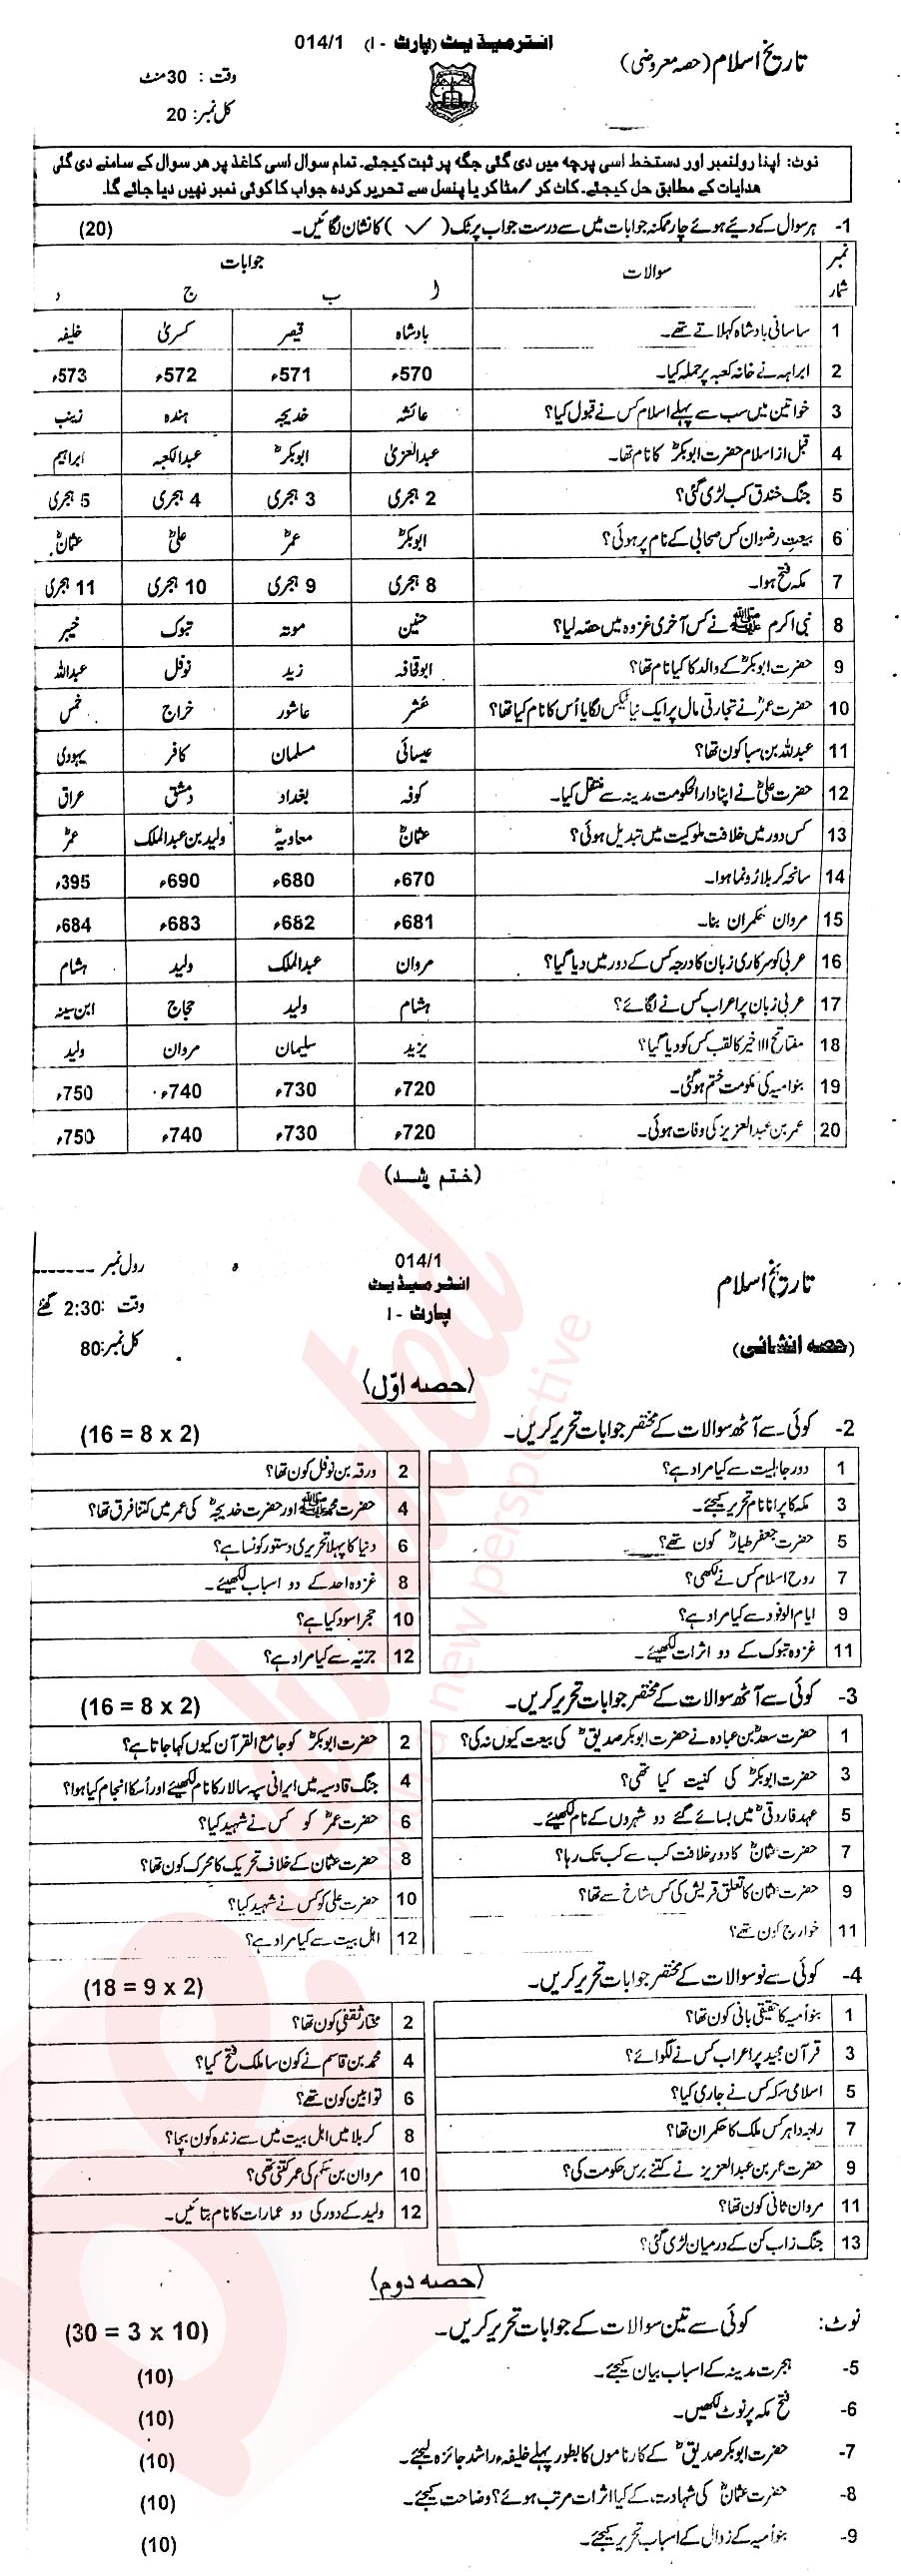 انٹرمیڈیٹ (پارٹ - I) 014/1
تاریخ اسلام (حصہ معروضی)
وقت : 30 منٹ
کل نمبر: 20
نوٹ: اپنا رولنمبر اور دستخط اسی پرچہ میں دی گئی جگہ پر ثبت کیجئے۔ تمام سوال اسی کاغذ پر ہر سوال کے سامنے دی گئی
ہدایات کے مطابق حل کیجئے۔ کاٹ کر / مٹا کر یا پنسل سے تحریر کردہ جواب کا کوئی نمبر نہیں دیا جائے گا۔
1- ہر سوال کے دیئے ہوئے چار ممکنہ جوابات میں سے درست جواب پر ٹک (✓) کا نشان لگائیں۔ (20)
نمبر شمار سوالات جوابات
ا ب ج د
1 ساسانی بادشاہ کہلاتے تھے۔ بادشاہ قیصر کسریٰ خلیفہ
2 ابراہہ نے خانہ کعبہ پر حملہ کیا۔ 570ء 571ء 572ء 573ء
3 خواتین میں سب سے پہلے اسلام کس نے قبول کیا؟ عائشہ خدیجہ ہندہ زینب
4 قبل از اسلام حضرت ابوبکرؓ کا نام تھا۔ عبدالعزیٰ ابوبکرؓ عبدالکعبہ ابراہیم
5 جنگ خندق کب لڑی گئی؟ 2 ہجری 3 ہجری 4 ہجری 5 ہجری
6 بیعت رضوان کس صحابی کے نام پر ہوئی؟ ابوبکرؓ عمرؓ علیؓ عثمانؓ
7 مکہ فتح ہوا۔ 8 ہجری 9 ہجری 10 ہجری 11 ہجری
8 نبی اکرم ﷺ نے کس آخری غزوہ میں حصہ لیا؟ حنین موتہ تبوک خیبر
9 حضرت ابوبکرؓ کے والد کا کیا نام تھا؟ ابوقحافہ زید نوفل عبداللہ
10 حضرت عمرؓ نے تجارتی مال پر ایک نیا ٹیکس لگایا اُس کا نام کیا تھا؟ عُشر عاشور خراج خمس
11 عبداللہ بن سبا کون تھا؟ عیسائی مسلمان کافر یہودی
12 حضرت علیؓ نے اپنا دارالحکومت مدینہ سے منتقل کیا۔ کوفہ بغداد دمشق عراق
13 کس دور میں خلافت ملوکیت میں تبدیل ہوئی؟ عثمانؓ معاویہؓ ولید بن عبدالملک عمرؓ
14 سانحہ کربلا رونما ہوا۔ 670ء 680ء 690ء 395ء
15 مروان حکمران بنا۔ 681ء 682ء 683ء 684ء
16 عربی کو سرکاری زبان کا درجہ کس کے دور میں دیا گیا؟ مروان عبدالملک ولید ہشام
17 عربی زبان پر اعراب کس نے لگائے؟ ہشام ولید حجاج ابن سینہ
18 مفتاح الاخیر کا لقب کس کو دیا گیا؟ یزید سلیمان مروان ولید
19 بنو امیہ کی حکومت ختم ہوگئی۔ 720ء 730ء 740ء 750ء
20 عمر بن عبدالعزیز کی وفات ہوئی۔ 720ء 730ء 740ء 750ء
(ختم شد)
014/1
رول نمبر -------
تاریخ اسلام
انٹرمیڈیٹ
پارٹ - I
وقت: 2:30 گھنٹے
(حصہ انشائی)
کل نمبر: 80
(حصہ اوّل)
2- کوئی سے آٹھ سوالات کے مختصر جوابات تحریر کریں۔ (16 = 8 x 2)
1 دور جاہلیت سے کیا مراد ہے؟
2 ورقہ بن نوفل کون تھا؟
3 مکہ کا پرانا نام تحریر کیجئے۔
4 حضرت محمد ﷺ اور حضرت خدیجہؓ کی عمر میں کتنا فرق تھا؟
5 حضرت جعفر طیارؓ کون تھے؟
6 دنیا کا پہلا تحریری دستور کونسا ہے؟
7 روح اسلام کس نے لکھی؟
8 غزوہ احد کے دو اسباب لکھیئے۔
9 ایام الوفود سے کیا مراد ہے؟
10 حجر اسود کیا ہے؟
11 غزوہ تبوک کے دو اثرات لکھیئے۔
12 جزیہ سے کیا مراد ہے؟
3- کوئی سے آٹھ سوالات کے مختصر جوابات تحریر کریں۔ (16 = 8 x 2)
1 حضرت سعدؓ بن عبادہ نے حضرت ابوبکر صدیقؓ کی بیعت کیوں نہ کی؟
2 حضرت ابوبکرؓ کو جامع القرآن کیوں کہا جاتا ہے؟
3 حضرت ابوبکرؓ کی کنیت کیا تھی؟
4 جنگ قادسیہ میں ایرانی سپہ سالار کا نام لکھیئے اور اُسکا انجام کیا ہوا؟
5 عہد فاروقیؓ میں بسائے گئے دو شہروں کے نام لکھیئے۔
6 حضرت عمرؓ کو کس نے شہید کیا؟
7 حضرت عثمانؓ کا دور خلافت کب سے کب تک رہا؟
8 حضرت عثمان کے خلاف تحریک کا محرک کون تھا؟
9 حضرت عثمان کا تعلق قریش کی کس شاخ سے تھا؟
10 حضرت علی کو کس نے شہید کیا؟
11 خوارج کون تھے؟
12 اہل بیت سے کیا مراد ہے؟
4- کوئی سے نو سوالات کے مختصر جوابات تحریر کریں۔ (18 = 9 x 2)
1 بنو امیہ کا حقیقی بانی کون تھا؟
2 مختار ثقفی کون تھا؟
3 قرآن مجید پر اعراب کس نے لگوائے؟
4 محمد بن قاسم نے کون سا ملک فتح کیا؟
5 اسلامی سکہ کس نے جاری کیا؟
6 توابین کون تھے؟
7 راجہ داہر کس ملک کا حکمران تھا؟
8 کربلا میں اہل بیت میں سے زندہ کون بچا؟
9 حضرت عمر بن عبدالعزیز نے کتنے برس حکومت کی؟
10 مروان بن حکم کی عمر کتنی تھی؟
11 مروان ثانی کون تھا؟
12 ولید کے دور کی دو عمارات کا نام بتائیں۔
13 جنگ زاب کن کے درمیان لڑی گئی؟
(حصہ دوم)
نوٹ: کوئی سے تین سوالات کے جوابات تحریر کریں۔ (30 = 3 x 10)
5- ہجرت مدینہ کے اسباب بیان کیجئے۔ (10)
6- فتح مکہ پر نوٹ لکھیں۔ (10)
7- حضرت ابوبکر صدیقؓ کے کارناموں کا بطور پہلے خلیفہ راشد جائزہ لیجئے۔ (10)
8- حضرت عثمانؓ کی شہادت کے کیا اثرات مرتب ہوئے؟ وضاحت کیجئے۔ (10)
9- بنو امیہ کے زوال کے اسباب تحریر کیجئے۔ (10)